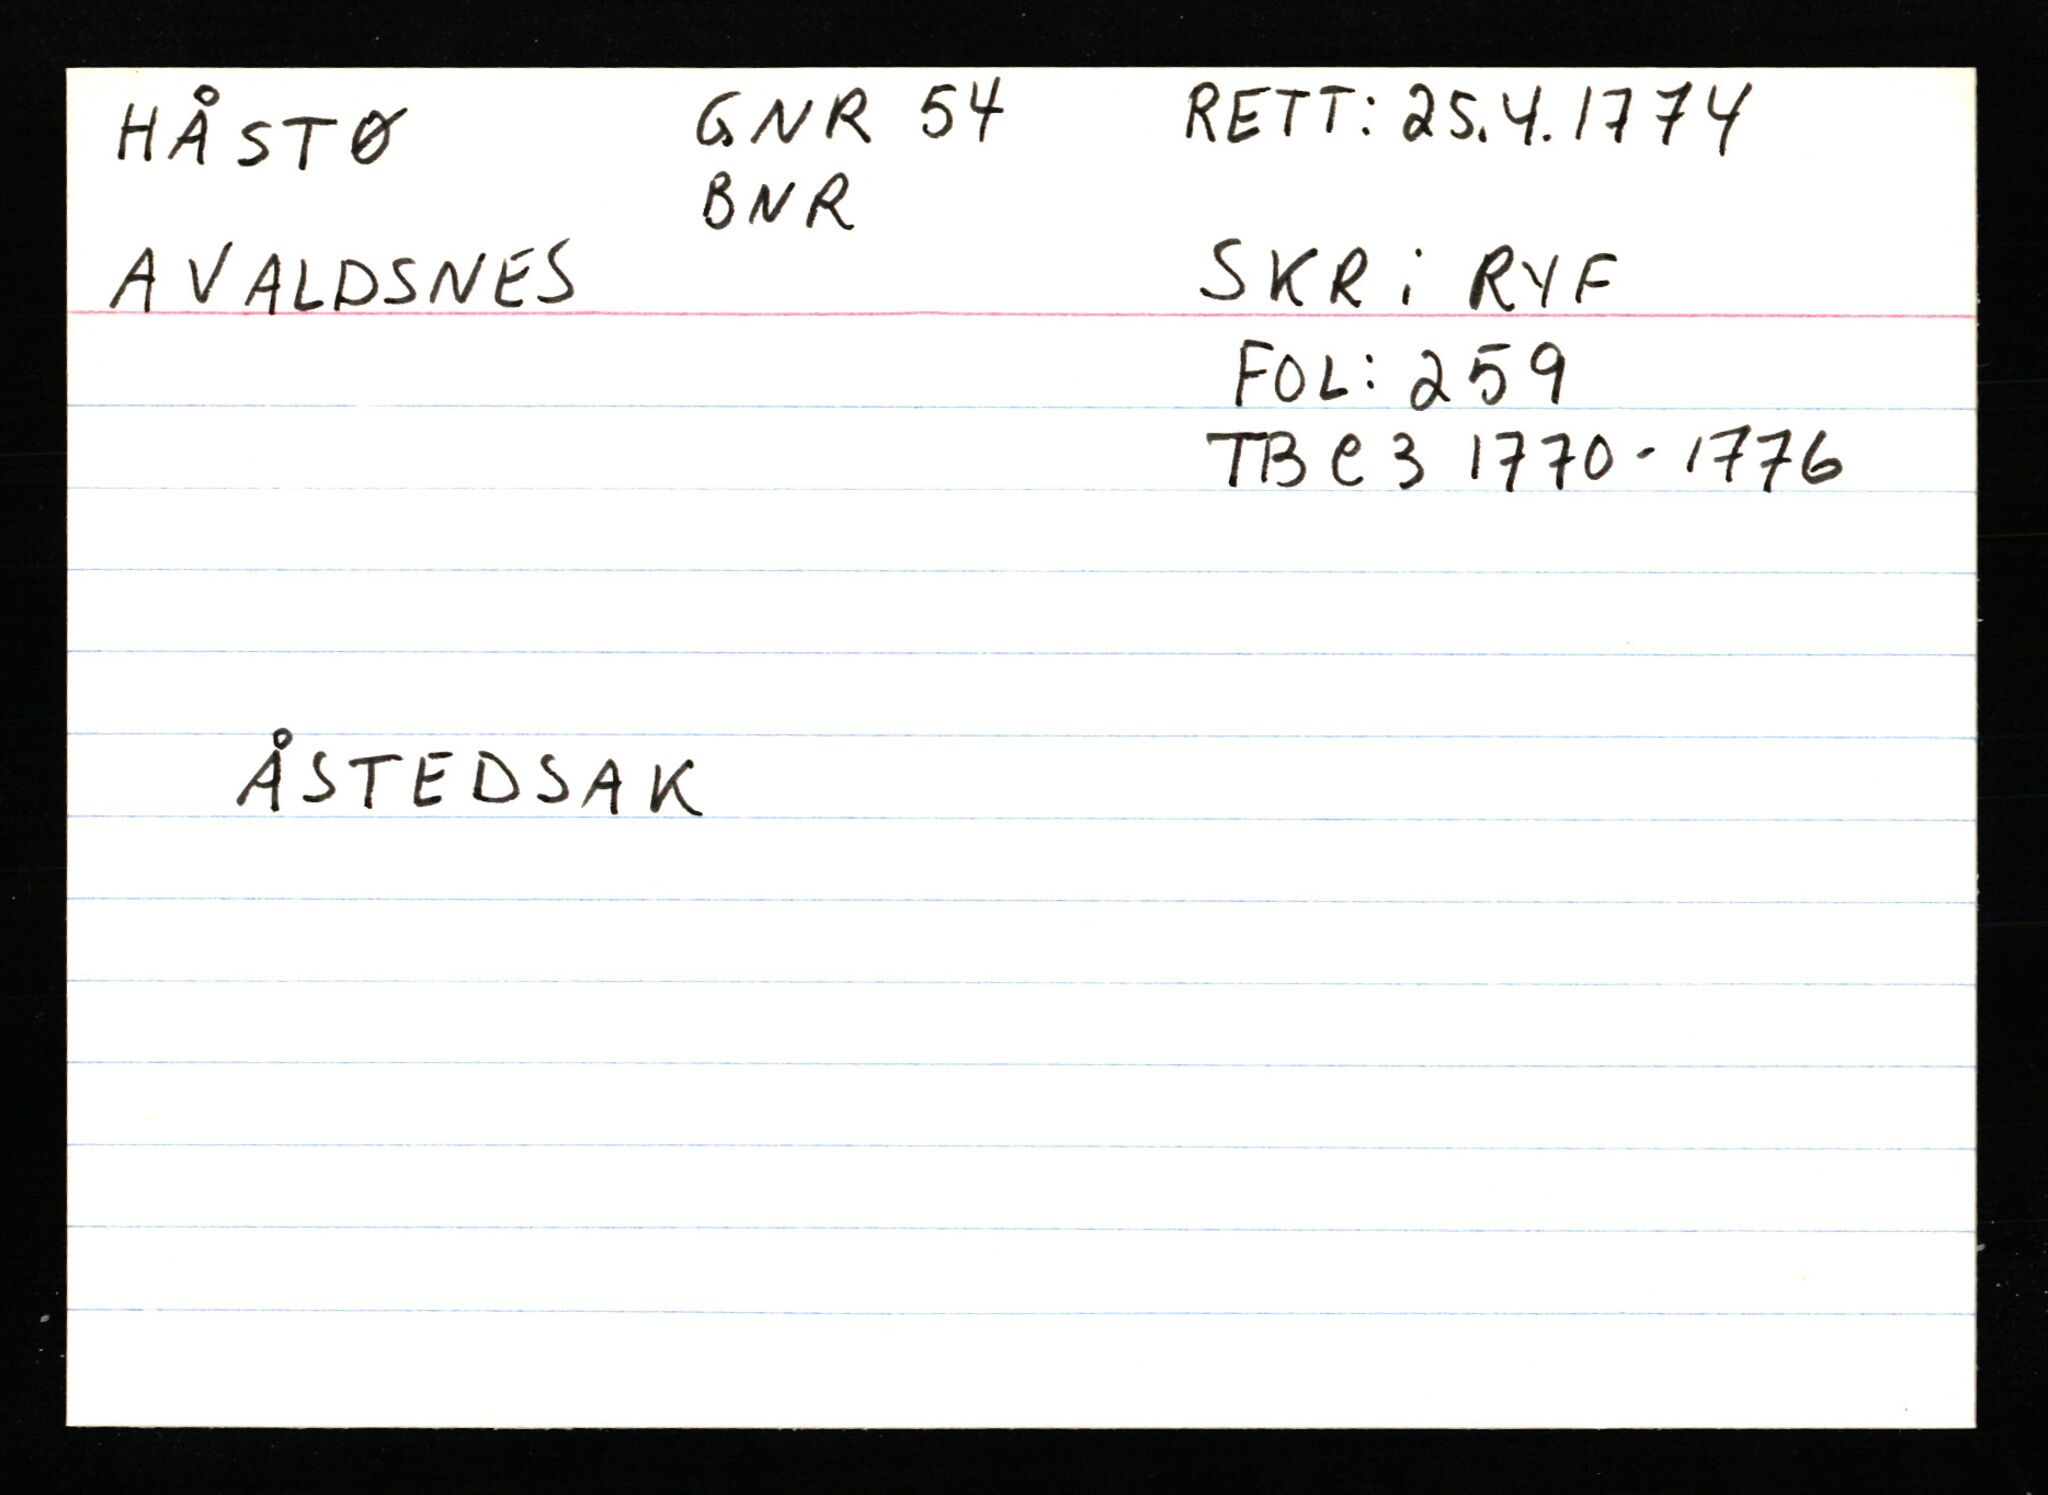 HÅSTØ GNR 54 RETT: 25.4.1774
BNR
AVALDSNES SKR i RYF
FOL: 259
TB C 3 1770 - 1776
ÅSTEDSAK